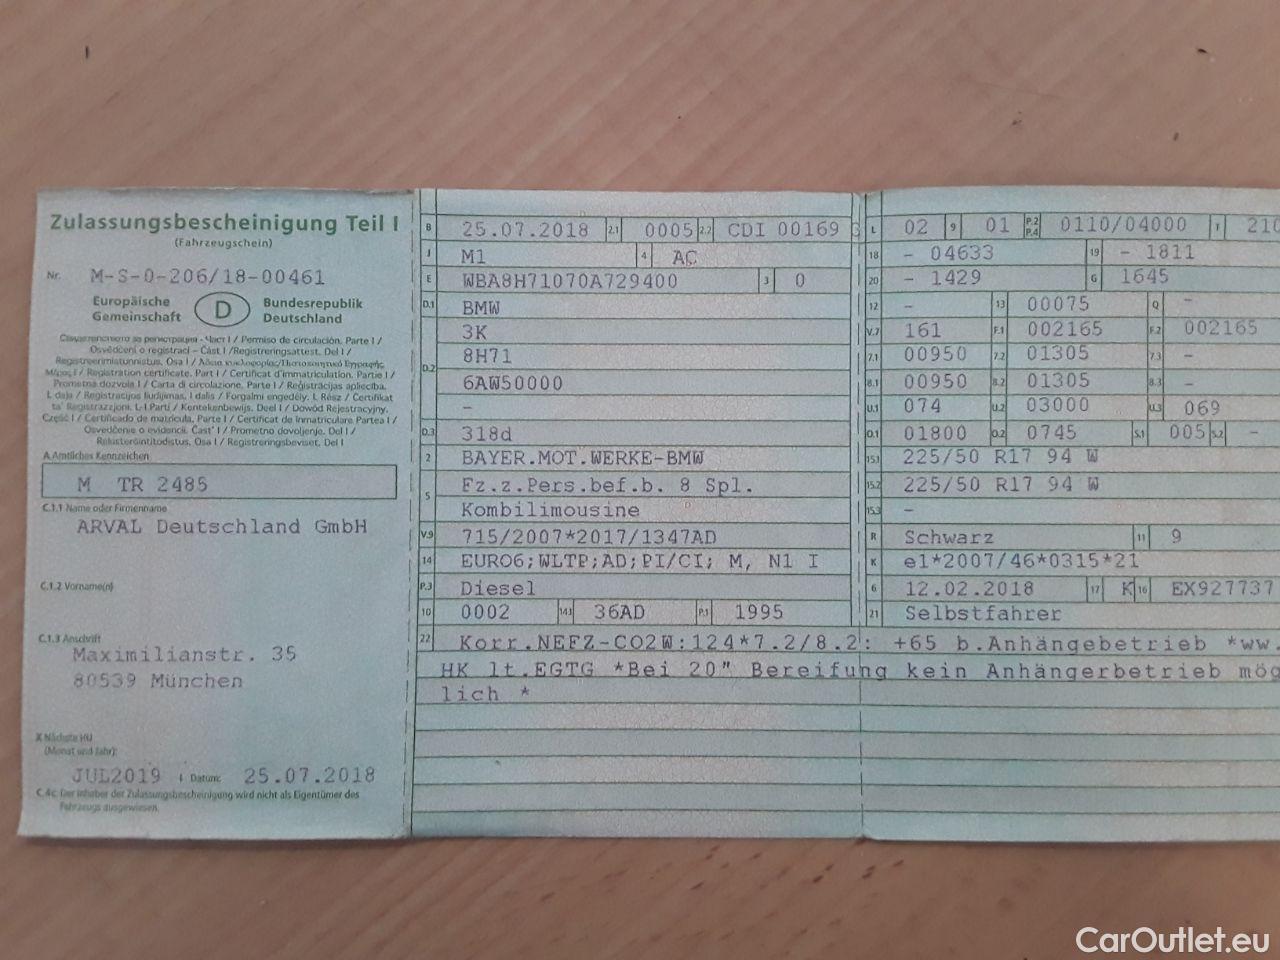 Zulassungsbescheinigung Teil I
(Fahrzeugschein)
Nr. M-S-0-206/18-00461
Europäische Gemeinschaft
D
Bundesrepublik Deutschland
Свидетелство за регистрация - Част I / Permiso de circulación. Parte I /
Osvědčení o registraci – Část I / Registreringsattest. Del I /
Registreerimistunnistus. Osa I / Άδεια κυκλοφορίας/Πιστοποιητικό Εγγραφής
Μέρος I / Registration certificate. Part I / Certificat d'immatriculation. Partie I /
Prometna dozvola I / Carta di circolazione. Parte I / Reģistrācijas apliecība.
I. daļa / Registracijos liudijimas. I dalis / Forgalmi engedély. I. Rész / Ċertifikat
ta' Reġistrazzjoni. L-I Parti / Kentekenbewijs. Deel I / Dowód Rejestracyjny.
Część I / Certificado de matrícula. Parte I / Certificat de înmatriculare Partea I /
Osvedčenie o evidencii. Časť I / Prometno dovoljenje. Del I /
Rekisteröintitodistus. Osa I / Registreringsbeviset. Del I
A Amtliches Kennzeichen
M TR 2485
C.1.1 Name oder Firmenname
ARVAL Deutschland GmbH
C.1.2 Vorname(n)
C.1.3 Anschrift
Maximilianstr. 35
80539 München
X Nächste HU
(Monat und Jahr):
JUL2019 I Datum: 25.07.2018
C.4c Der Inhaber der Zulassungsbescheinigung wird nicht als Eigentümer des
Fahrzeugs ausgewiesen.
B 25.07.2018 2.1 0005 2.2 CDI 00169
J M1 4 AC
E WBA8H71070A729400 3 0
D.1 BMW
3K
D.2 8H71
6AW50000
–
D.3 318d
2 BAYER.MOT.WERKE-BMW
5 Fz.z.Pers.bef.b. 8 Spl.
Kombilimousine
V.9 715/2007*2017/1347AD
14 EURO6;WLTP;AD;PI/CI; M, N1 I
P.3 Diesel
10 0002 14.1 36AD P.1 1995
L 02 9 01 P.2 P.4 0110/04000 T 210
18 - 04633 19 - 1811
20 - 1429 G 1645
12 – 13 00075 Q –
V.7 161 F.1 002165 F.2 002165
7.1 00950 7.2 01305 7.3 –
8.1 00950 8.2 01305 8.3 –
U.1 074 U.2 03000 U.3 069
O.1 01800 O.2 0745 S.1 005 S.2 –
15.1 225/50 R17 94 W
15.2 225/50 R17 94 W
15.3 –
R Schwarz 11 9
K e1*2007/46*0315*21
6 12.02.2018 17 K 16 EX927737
21 Selbstfahrer
22 Korr.NEFZ-CO2W:124*7.2/8.2: +65 b.Anhängebetrieb *ww.
HK lt.EGTG *Bei 20" Bereifung kein Anhängerbetrieb mög
lich *
CarOutlet.eu